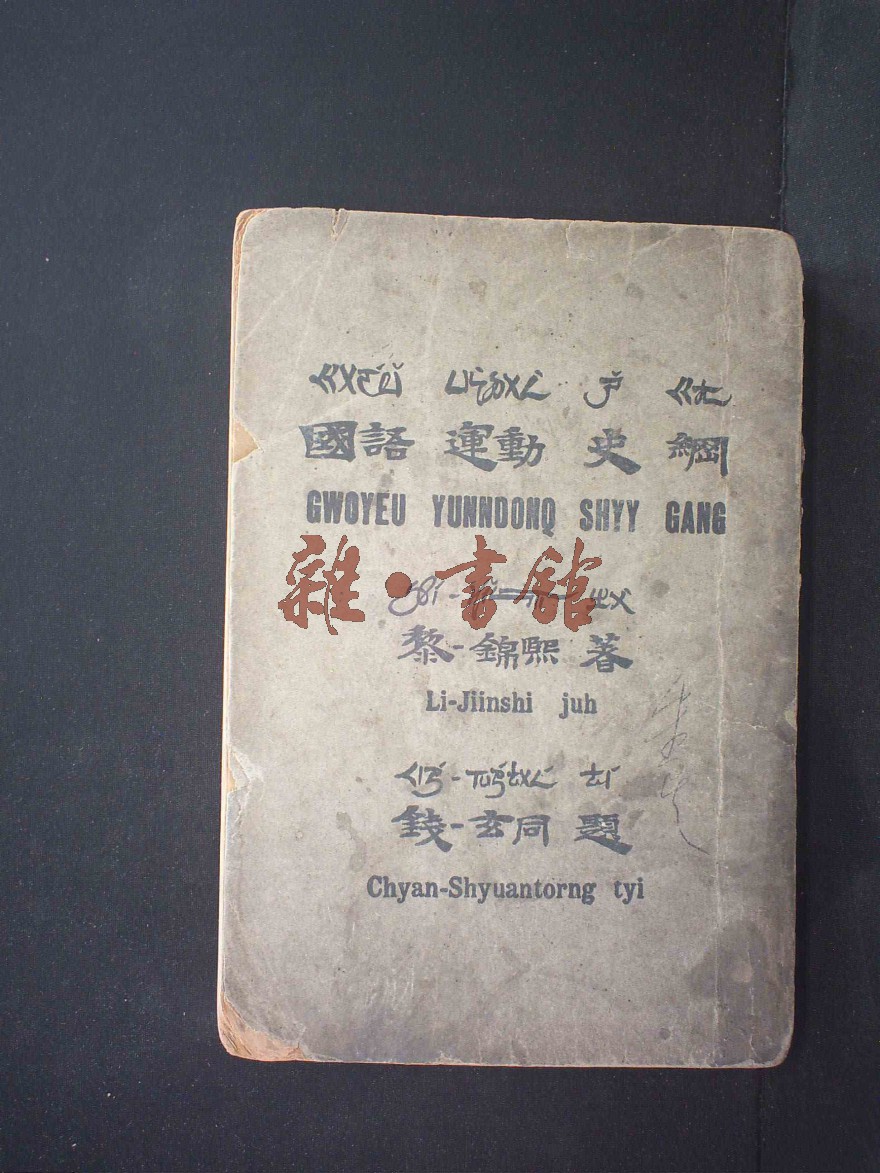 ㄍㄨㄛˊㄩˇ ㄩㄣˋㄉㄨㄥˋ ㄕˇ ㄍㄤ
國語 運動 史 綱
GWOYEU YUNNDONQ SHYY GANG
雜·書館
黎-錦熙 著
Li-Jiinshi juh
ㄑㄧㄢˊ-ㄒㄩㄢˊㄊㄨㄥˊ ㄊㄧˊ
錢-玄同 題
Chyan-Shyuantorng tyi